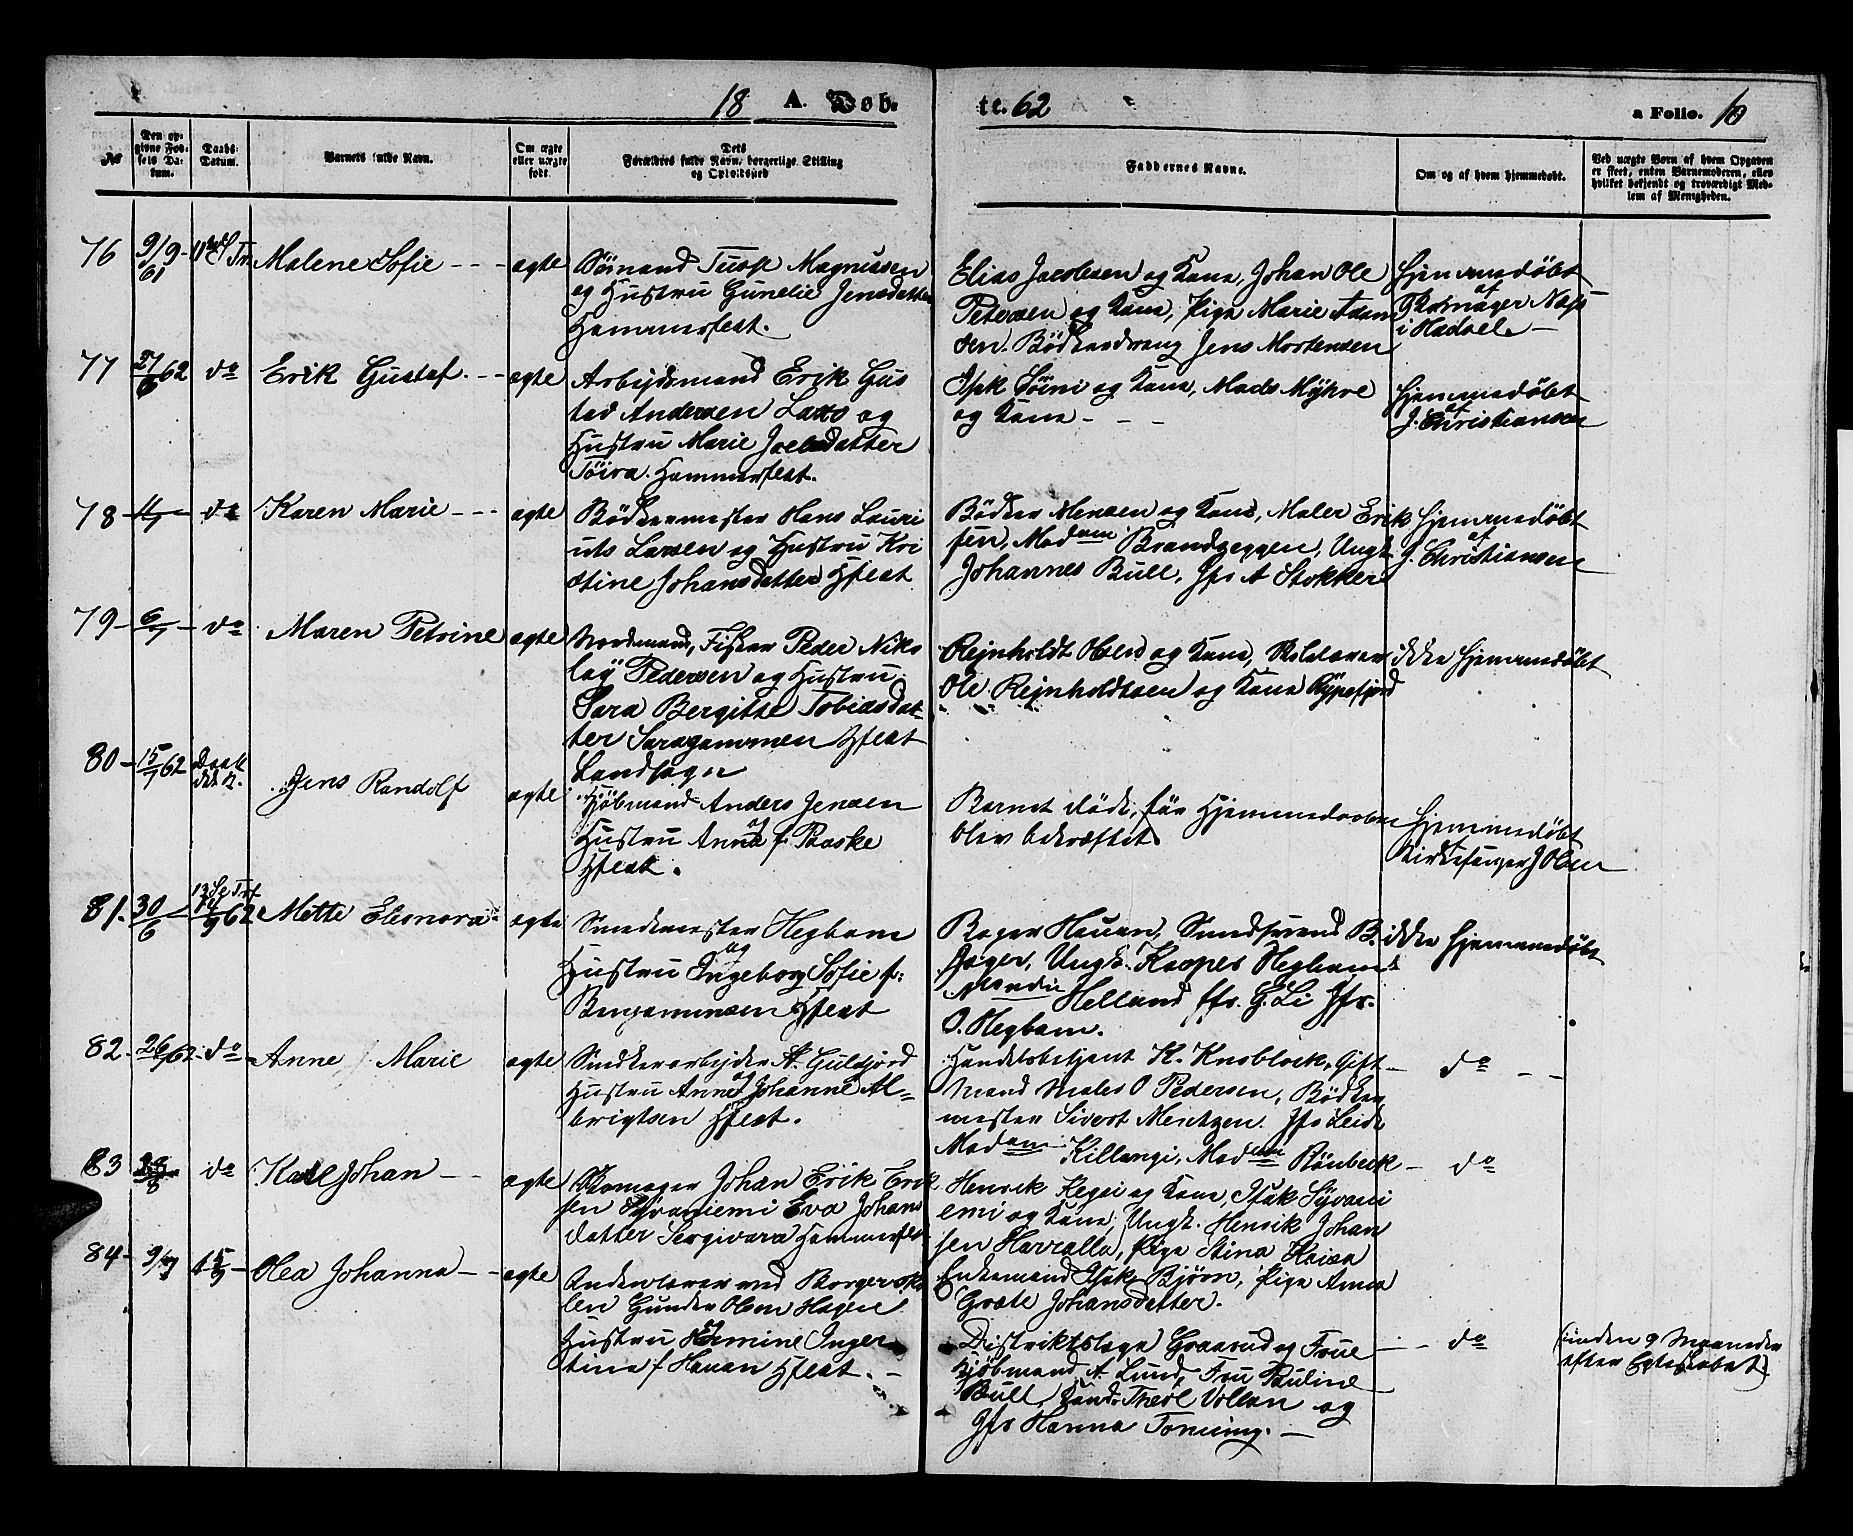 18 A. Døb-
te. 62
a Folio. 10
No
Den op-
givne Fød-
sels Da-
tum.
Daabs-
Datum.
Barnets fulde Navn.
Om ægte
eller uægte
født.
Dets
Forældres fulde Navn, borgerlige Stilling
og Opholdssted
Faddernes Navne.
Om og af hvem hjemmedøbt.
Ved uægte Børn af hvem Opgaven
er skeet, enten Barnemoderen, eller
hvilket bekjendt og troværdigt Med-
lem af Menigheden.
76 9/9 61
Malene Sofie - - -
ægte
Sømand Magnussen
og Hustru Gunelie Jensdatter
Hammerfest.
Elias Jacobsen og Kone, Johan Ole
Petersen og Kone, Pige Marie Adam
sen. Bødkerdreng Jens Mortensen
Hjemmedøbt
af
Skomager
i Hadsel -
77 62 do
Erik Gustaf. - -
ægte
Arbejdsmand Erik Gus
tav Andersen Laxo og
Hustru Marie Joelsdatter
Töira. Hammerfest.
Isak Söini og Kone, Mads Myhre
og Kone - - -
Hjemmedøbt
af
J. Christiansen
78 do
Karen Marie - - -
ægte
Bødkermester Hans Lauri
uts Larsen og Hustru Kri
stine Johansdatter Hfest
Bødker Mensen og Kone, Maler Erik
sen, Madam Brandzeggen, Ungk.
Johannes Bull, Jfr A Stokker
Hjemmedøbt
af
J. Christiansen
79 - 6/7 - do
Maren Petrine
ægte
Nordmand, Fisker Peder Nik
lay Pedersen og Hustru
Sara Bergitte Tobiasdat-
ter Saragammen Hfest
Landsogn
Rejnholdt Olsen og Kone, Skolelærer
Ole Rejnholdtsen og Kone Rypefjord
ikke hjemmedøbt
80 - 15/7 62
Jens Randolf
ægte
Kjøbmand Anders Jensen
og
Hustru Anna f. Baske
Hfest.
Barnet døde, før Hjemmedaaben
blev bekræftet.
Hjemmedøbt
af
Kirkesanger J Olsen
81. 30/6 14/9 62
Mette Elenora
ægte
Smedemester Hegbom
og
Hustru Ingeborg Sofie f:
Benjaminsen Hfest
Bager Hauan, Smedsvend B.
Jæger, Ungk. Kasper Hegbom
Helland Jfr. G. Li Jfr.
O. Hegbom.
ikke hjemmedøbt
82 - 26/ 62 do
Anne Marie
ægte
Snedkerarbejder A. Guldfjord
og
Hustru Anne Johanne Al-
brigtsen Hfest.
Handelsbetjent K. Knoblock, Gift
Mand Maler O Pedersen, Bødker
mester Sivert Mentzen. Jfr
Madam Killengi, Madam Rönbeck
do - -
83 do
Karl Johan - -
ægte
Skomager Johan Erik Erik
sen Syvaniemi Eva Johans
datter Sergivara Hammerfest
Henrik Kegsi og Kone, Isak Syvani
emi og Kone, Ungk. Henrik Johan
sen Havralla, Pige Stina Kaisa
Enkemand Isak Björn, Pige Anna
Grete Johansdatter.
- do
84 - 9/7 15/9 -
Olea Johanna - -
ægte
Underlærer ved Borgersko
len Gunder Olsen Hagen
og
Hustru Hermine Inger
tina f Hauan Hfest. -
Distriktslæge Graarud og Frue
Kjøbmand A. Lund, Fru Pauline
Bull, Cand. Theol Vollan og
Jfr Hanna Tonning. -
- - do
(inden 9 Maaneder
efter Egteskabet)